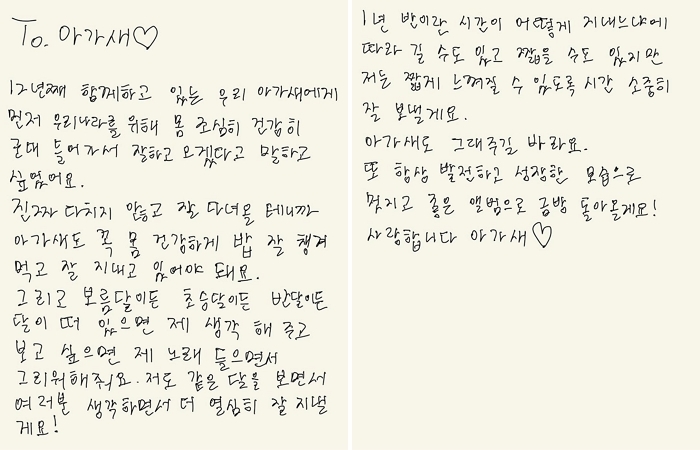 To. 아가새♡
12년째 함께하고 있는 우리 아가새에게
먼저 우리나라를 위해 몸 조심히 건강히
군대 들어가서 잘하고 오겠다고 말하고
싶었어요.
진짜 다치지 않고 잘 다녀올 테니까
아가새도 꼭 몸 건강하게 밥 잘 챙겨
먹고 잘 지내고 있어야 돼요.
그리고 보름달이든 초승달이든 반달이든
달이 떠 있으면 제 생각 해 주고
보고 싶으면 제 노래 들으면서
그리워해줘요. 저도 같은 달을 보면서
여러분 생각하면서 더 열심히 잘 지낼
게요!
1년 반이란 시간이 어떻게 지내느냐에
따라 길 수도 있고 짧을 수도 있지만
저는 짧게 느껴질 수 있도록 시간 소중히
잘 보낼게요.
아가새도 그래주길 바라요.
또 항상 발전하고 성장한 모습으로
멋지고 좋은 앨범으로 금방 돌아올게요!
사랑합니다 아가새♡